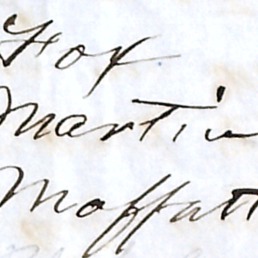 For
Martin
Moffatt